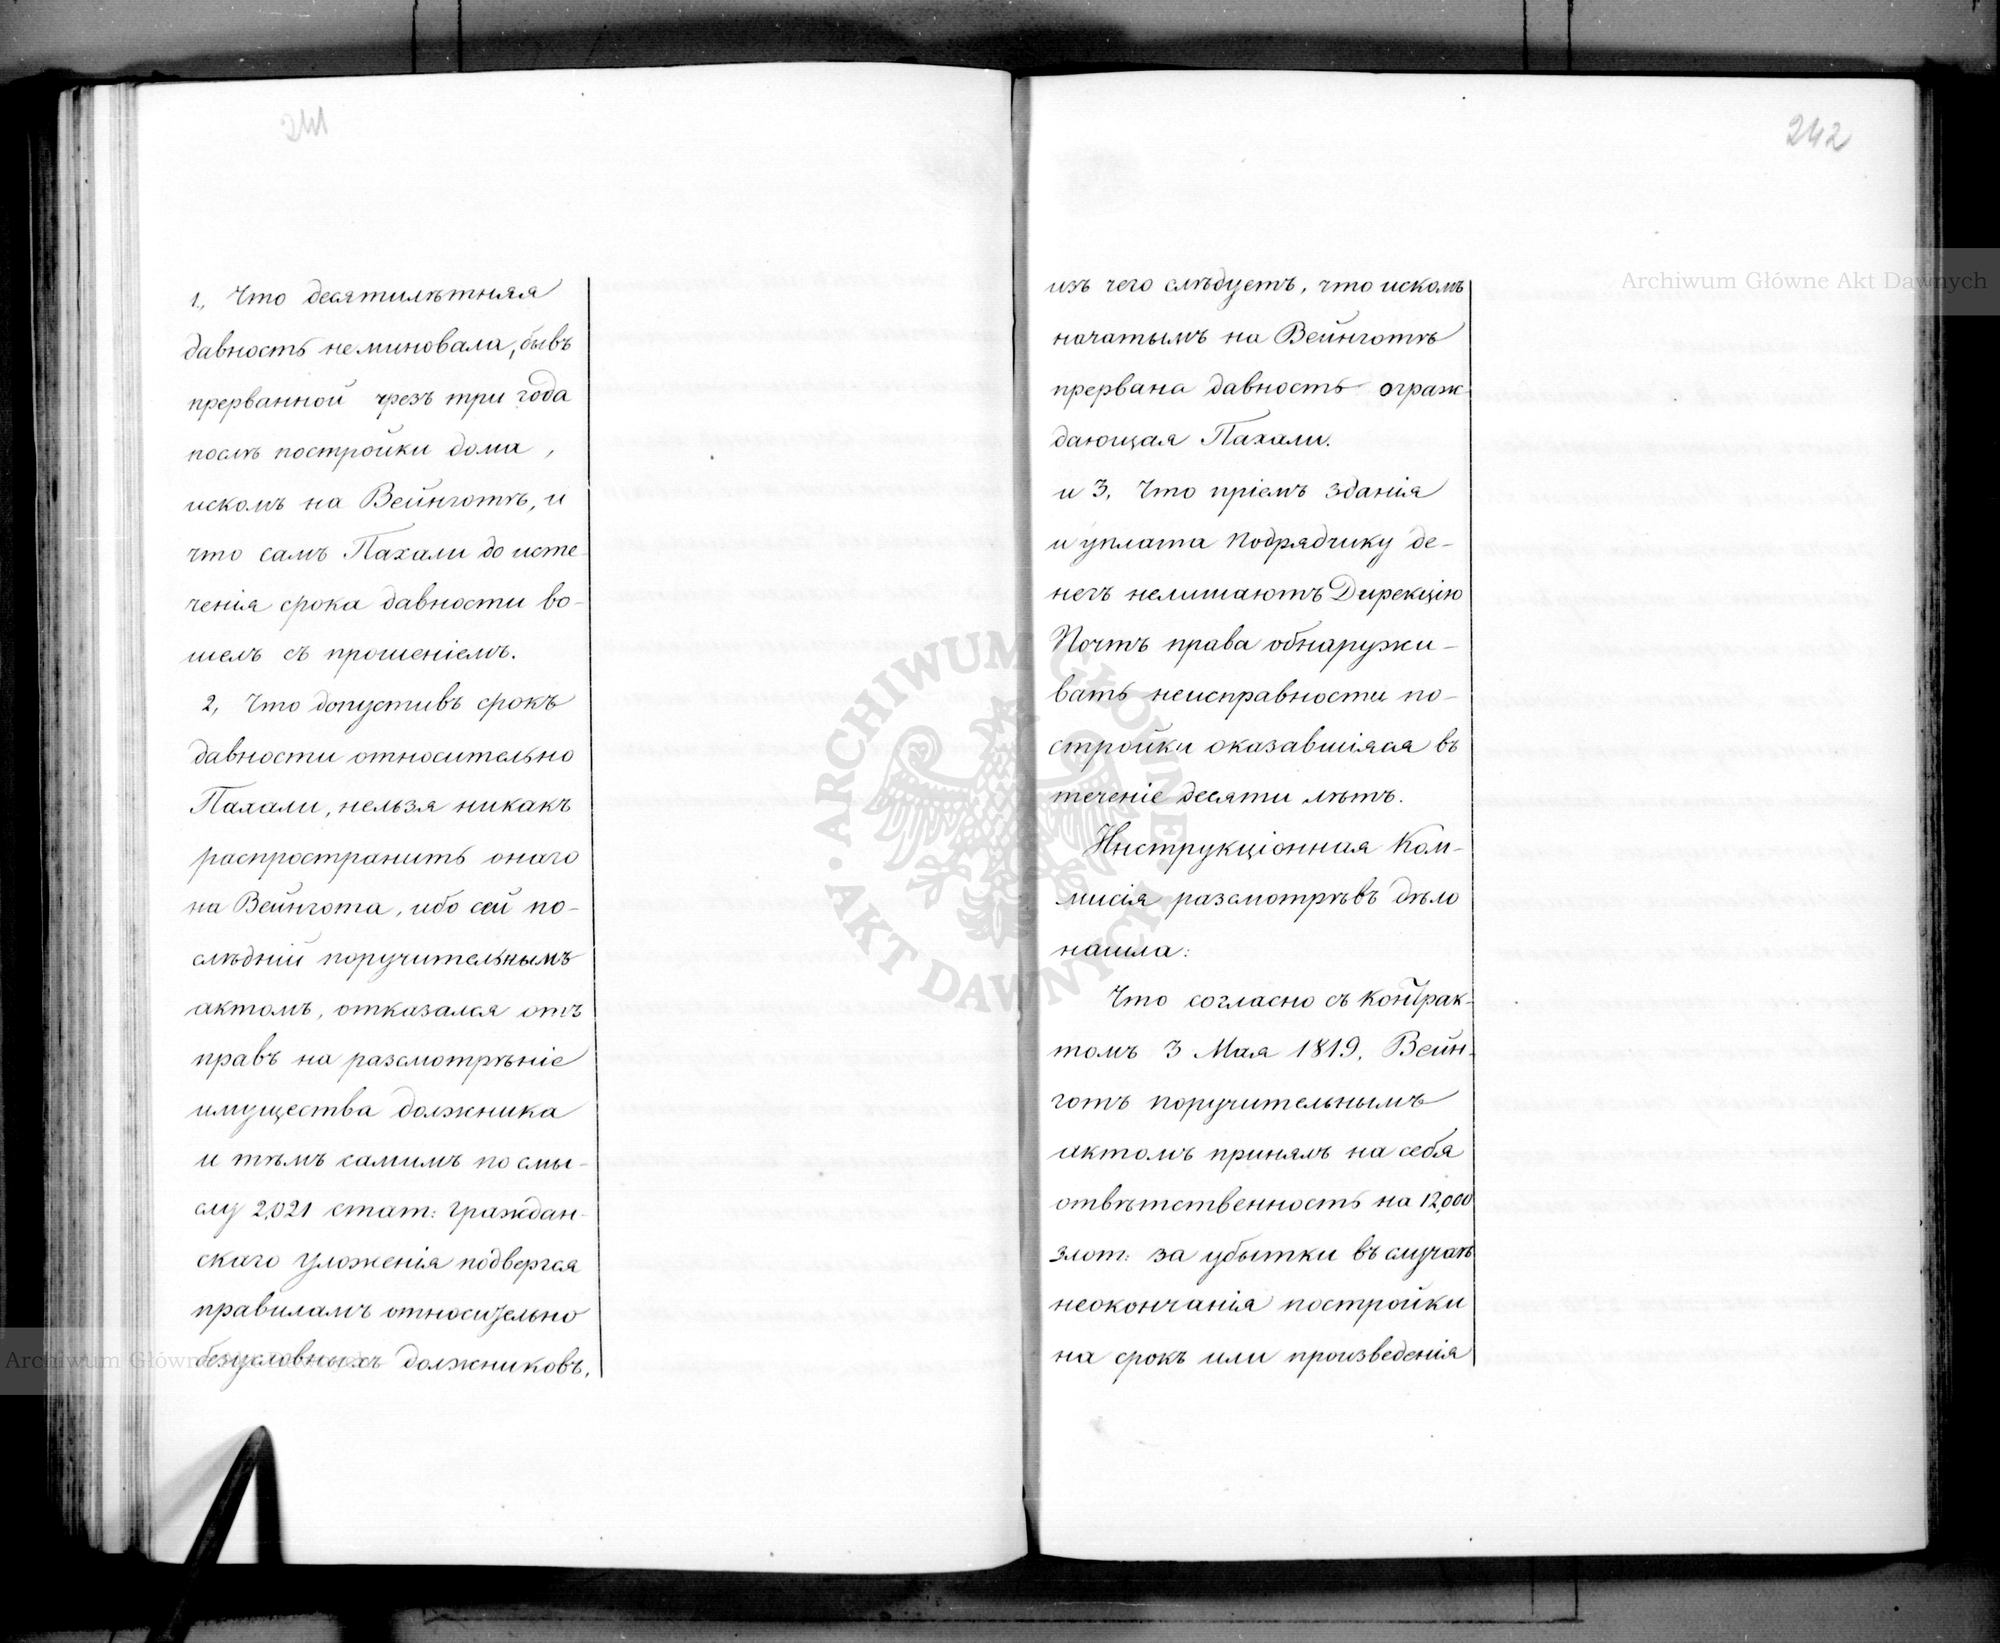 241
1., Что десятилѣтняя
давность неминовала, бывъ
прерванной чрезъ три года
послѣ постройки дома,
искомъ на Вейнготѣ, и
что самъ Пахали до исте-
ченія срока давности во-
шелъ съ прошеніемъ.
2, Что допустивъ срокъ
давности относительно
Пахали, нельзя никакъ
распространить онаго
на Вейнгота, ибо сей по-
слѣдній поручительнымъ
актомъ, отказался отъ
правъ на разсмотрѣніе
имущества должника
и тѣмъ самимъ по смы-
слу 2,021 стат: граждан-
скаго Уложенія подвергся
правиламъ относительно
безусловныхъ должниковъ,
242
изъ чего слѣдуетъ, что искомъ
начатымъ на Вейнготѣ
прервана давность ограж-
дающая Пахали.
и 3, Что пріемъ зданія
и уплата Подрядчику де-
негъ нелишаютъ Дирекцію
Почтъ права обнаружи-
вать неисправности по-
стройки оказавшіяся въ
теченіе десяти лѣтъ.
Инструкціонная Ком-
мисія разсмотрѣвъ дѣло
нашла:
Что согласно съ контрак-
томъ 3 Мая 1819. Вейн-
готъ поручительнымъ
актомъ принялъ на себя
отвѣтственность на 12,000
злот: за убытки въ случаѣ
неокончанія постройки
на срокъ или произведенія
Archiwum Główne Akt Dawnych
ARCHIWUM GŁÓWNE · AKT DAWNYCH ·